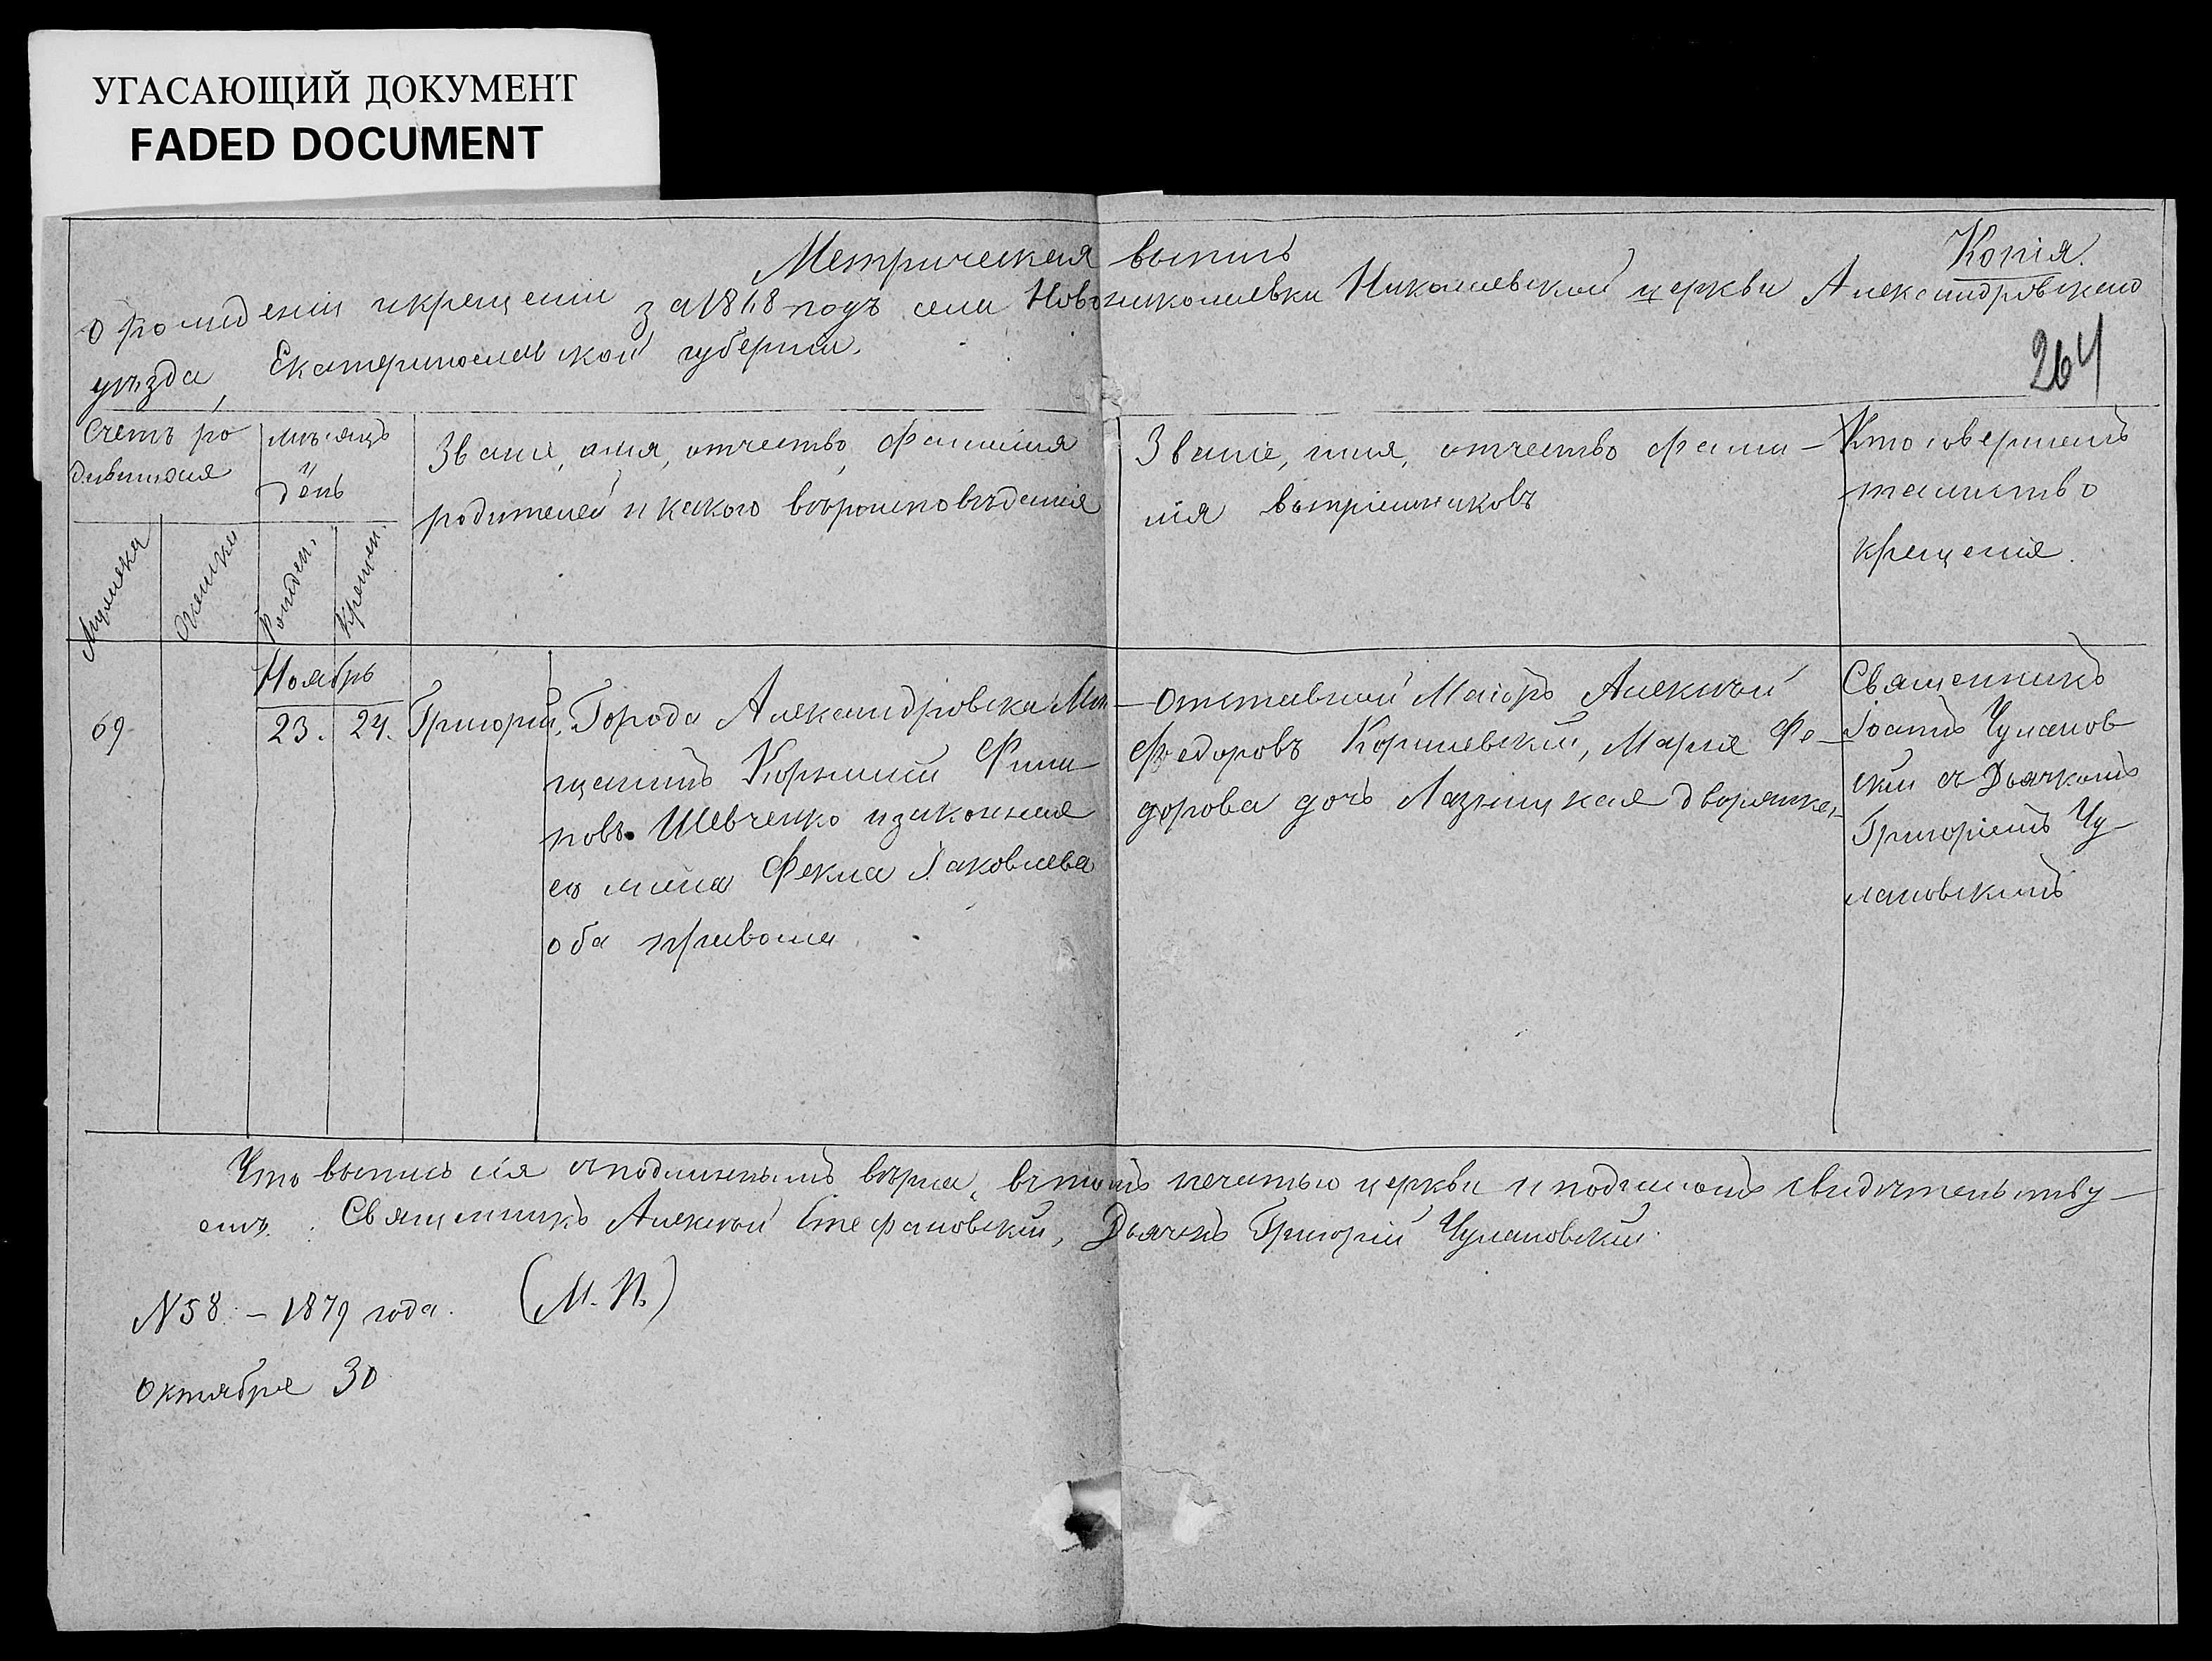 УГАСАЮЩИЙ ДОКУМЕНТ
FADED DOCUMENT
Копія.
Метрическая выпись
о рожденіи и крещеніи за 1868 годъ села Новониколаевки Николаевской церкви Александровскаго
уѣзда, Екатеринославской губерніи.
264
Счетъ ро
дившихся
мѣсяцъ
и
день
Званіе, имя, отчество, фамилія
родителей и какого вѣроисповѣданія
Званіе, имя, отчество фами-
лія воспріемниковъ
Кто совершилъ
таинство
крещенія.
Мужеска
Женска
Рожден.
Крещен.
Ноябрь
69
23. 24.
Григорій.
Города Александровска Мѣ-
щанинъ Корнилій Фили
повъ Шевченко и законная
его жена Фекла Іаковлева
оба православ.
Отставной Маіоръ Алексѣй
Федоровъ Корилевскій, Марія Фе-
дорова дочь Лазницкая дворянка
Священникъ
Іоаннъ Чуланов
скій съ Дьячкомъ
Григоріемъ Чу-
лановскимъ
Что выпись сія съ подлиннымъ вѣрна, въ томъ печатью церкви и подписомъ свидѣтельству-
емъ. Священникъ Алексѣй Стефановскій, Дьячекъ Григорій Чулановскій.
N 58. - 1879 года. (М. П.)
Октября 30